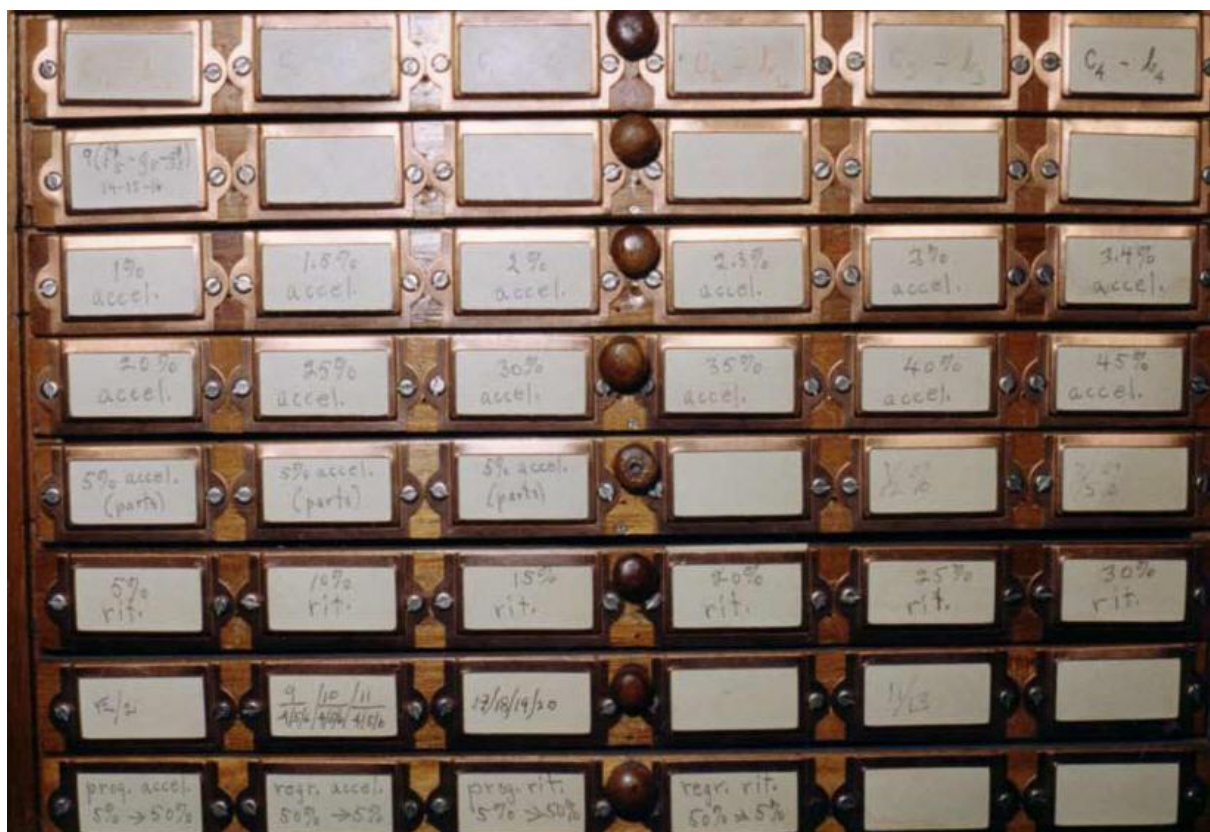 C₄ - b₄
14-15-16
1%
accel.
1.5%
accel.
2%
accel.
2.3%
accel.
3%
accel.
3.4%
accel.
20%
accel.
25%
accel.
30%
accel.
35%
accel.
40%
accel.
45%
accel.
5% accel.
(parts)
5% accel.
(parts)
5% accel.
(parts)
5%
rit.
10%
rit.
15%
rit.
20%
rit.
25%
rit.
30%
rit.
√2/2
9/10/11
4/5/6/4/5/6/4/5/6
17/18/19/20
prog. accel.
5% → 50%
regr. accel.
50% → 5%
prog. rit.
5% → 50%
regr. rit.
50% → 5%